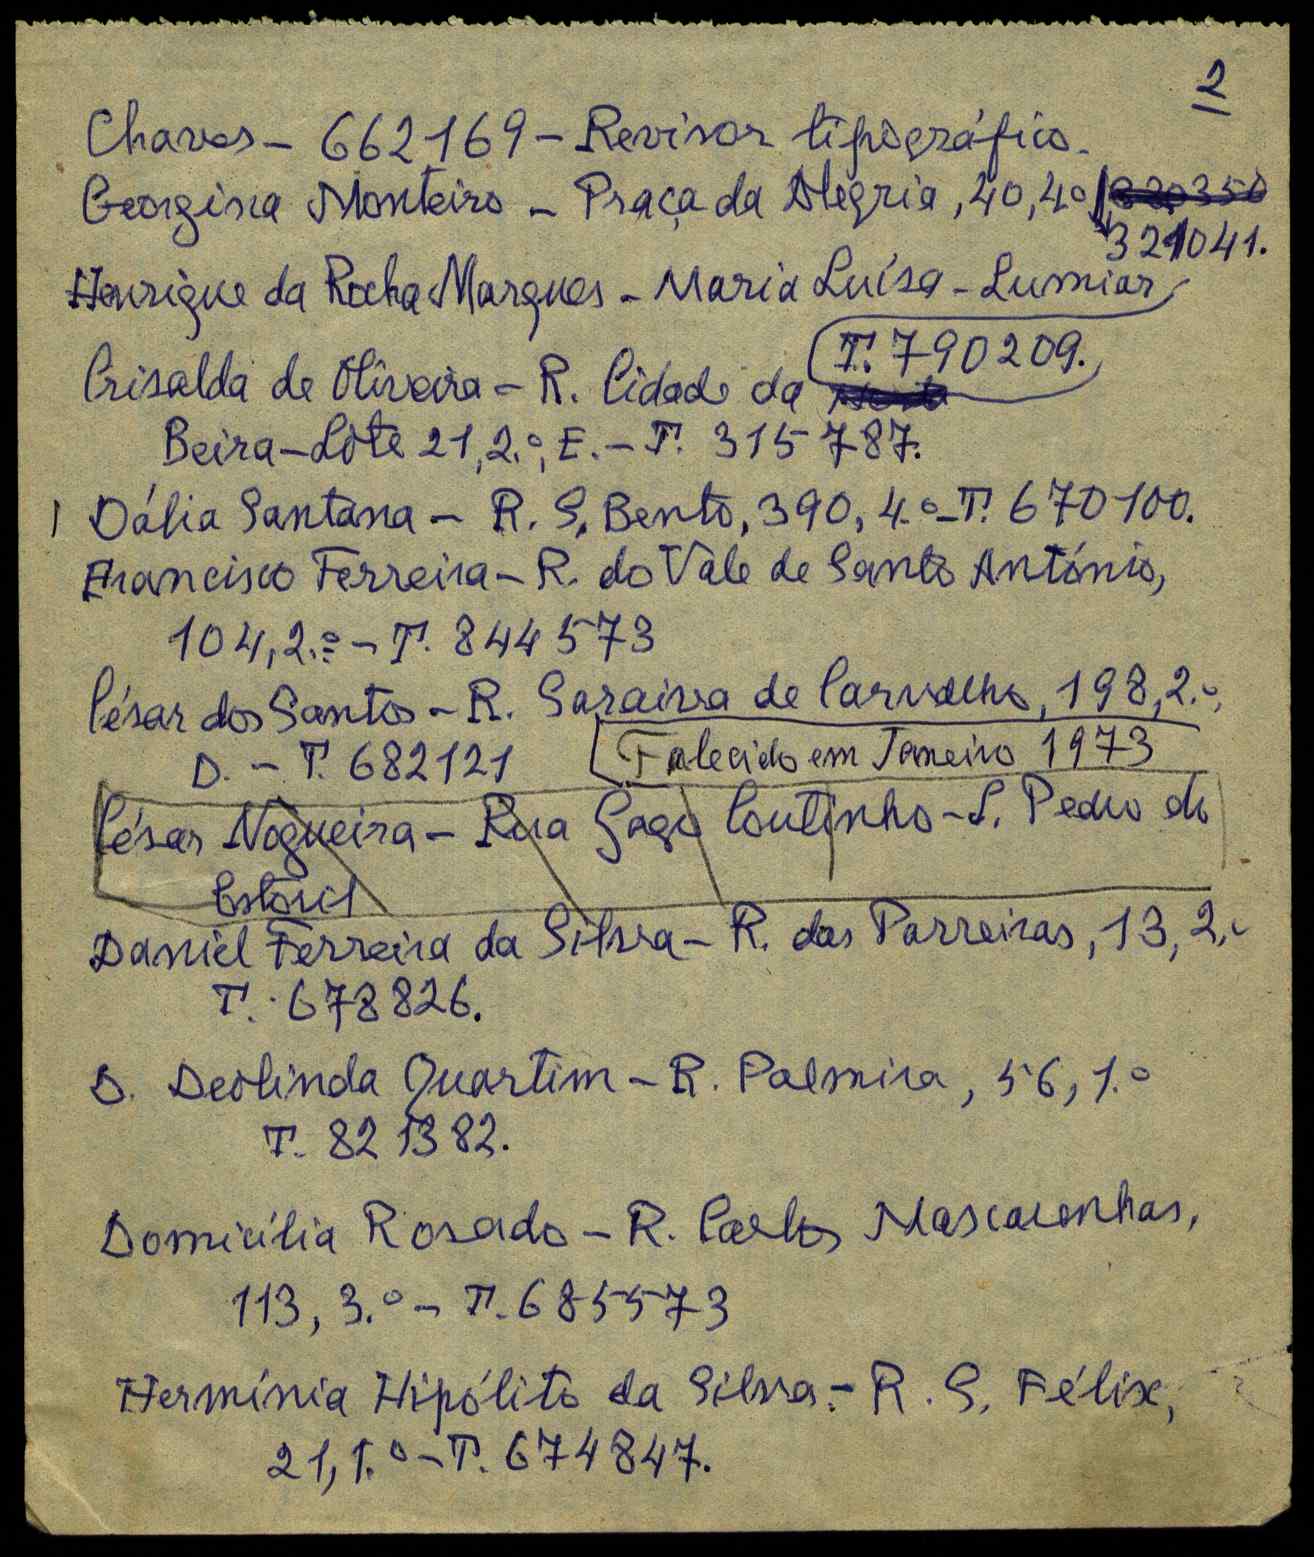 2
Chaves - 662169 - Revisor tipográfico.
Georgina Monteiro - Praça da Alegria, 40, 4º
321041.
Henrique da Rocha Marques - Maria Luísa - Lumiar
T. 790209.
Crisalda de Oliveira - R. Cidade da
Beira - Lote 21, 2.º, E. - T. 315787.
Dália Santana - R. S. Bento, 390, 4.º - T. 670100.
Francisco Ferreira - R. do Vale de Santo António,
104, 2.º - T. 844573
César dos Santos - R. Saraiva de Carvalho, 198, 2.º,
D. - T. 682121
Falecido em Janeiro 1973
César Nogueira - Rua Gago Coutinho - S. Pedro do
Estoril
Daniel Ferreira da Silva - R. das Parreiras, 13, 2.º
T. 678826.
D. Deolinda Quartim - R. Palmira, 56, 1.º
T. 821382.
Domicília Rosado - R. Carlos Mascarenhas,
113, 3.º - T. 685573
Hermínia Hipólito da Silva - R. S. Félix,
21, 1.º - T. 674847.